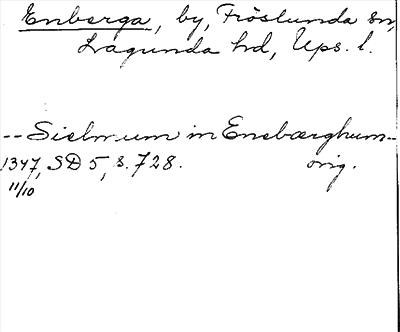 Enberga, by, Fröslunda sn,
Lagunda hd, Ups. l.
-- Sielwum in Enebærghum --
1347, SD 5, s. 728. orig.
11/10